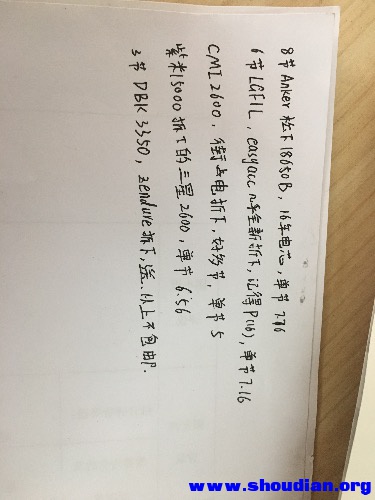 8节 Anker 松下18650B, 16年电芯, 单节7.76
6节 LGF1L, easyacc 几乎全新拆下, 记得P(16), 单节7.16
CMI2600, 街上电拆下, 好多节, 单节5
紫米15000拆下的三星2600, 单节6.56
3节 DBK3350, zendure拆下, 送. 以上不包邮.
www.shoudian.org